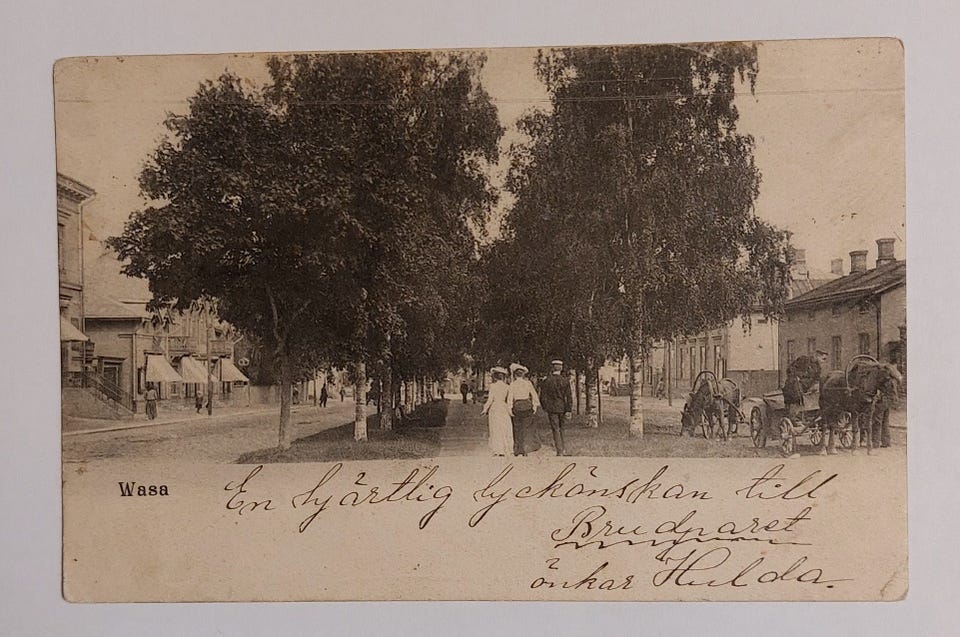 Wasa
En hjärtlig lyckönskan till
Brudparet
önkar Hulda.